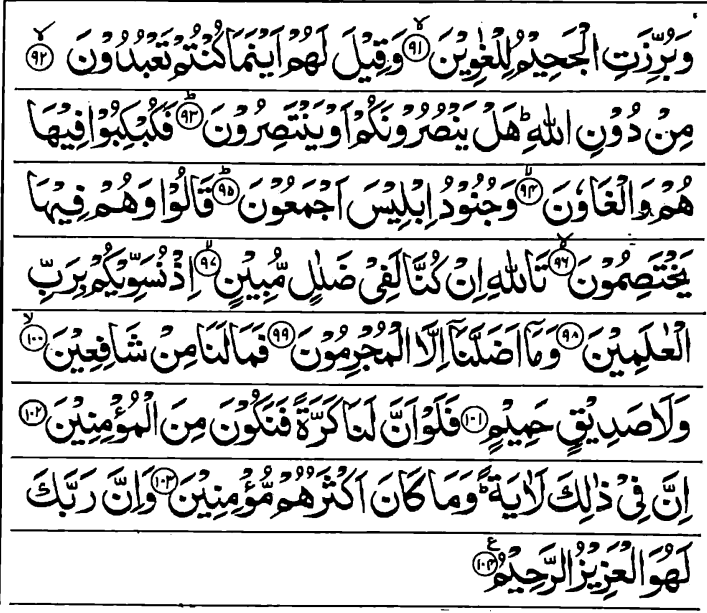 وَبُرِّزَتِ الْجَحِيْمُ لِلْغٰوِيْنَ ﴿۹۱﴾ۙ وَقِيْلَ لَهُمْ اَيْنَمَا كُنْتُمْ تَعْبُدُوْنَ ﴿۹۲﴾ۙ
مِنْ دُوْنِ اللّٰهِ ؕ هَلْ يَنْصُرُوْنَكُمْ اَوْ يَنْتَصِرُوْنَ ﴿۹۳﴾ؕ فَكُبْكِبُوْا فِيْهَا
هُمْ وَالْغَاوٗنَ ﴿۹۴﴾ۙ وَجُنُوْدُ اِبْلِيْسَ اَجْمَعُوْنَ ﴿۹۵﴾ؕ قَالُوْا وَهُمْ فِيْهَا
يَخْتَصِمُوْنَ ﴿۹۶﴾ۙ تَاللّٰهِ اِنْ كُنَّا لَفِيْ ضَلٰلٍ مُّبِيْنٍ ﴿۹۷﴾ۙ اِذْ نُسَوِّيْكُمْ بِرَبِّ
الْعٰلَمِيْنَ ﴿۹۸﴾ وَمَاۤ اَضَلَّنَاۤ اِلَّا الْمُجْرِمُوْنَ ﴿۹۹﴾ فَمَا لَنَا مِنْ شَافِعِيْنَ ﴿۱۰۰﴾ۙ
وَلَا صَدِيْقٍ حَمِيْمٍ ﴿۱۰۱﴾ فَلَوْ اَنَّ لَنَا كَرَّةً فَنَكُوْنَ مِنَ الْمُؤْمِنِيْنَ ﴿۱۰۲﴾
اِنَّ فِيْ ذٰلِكَ لَاٰيَةً ؕ وَمَا كَانَ اَكْثَرُهُمْ مُّؤْمِنِيْنَ ﴿۱۰۳﴾ وَاِنَّ رَبَّكَ
لَهُوَ الْعَزِيْزُ الرَّحِيْمُ ﴿۱۰۴﴾ع